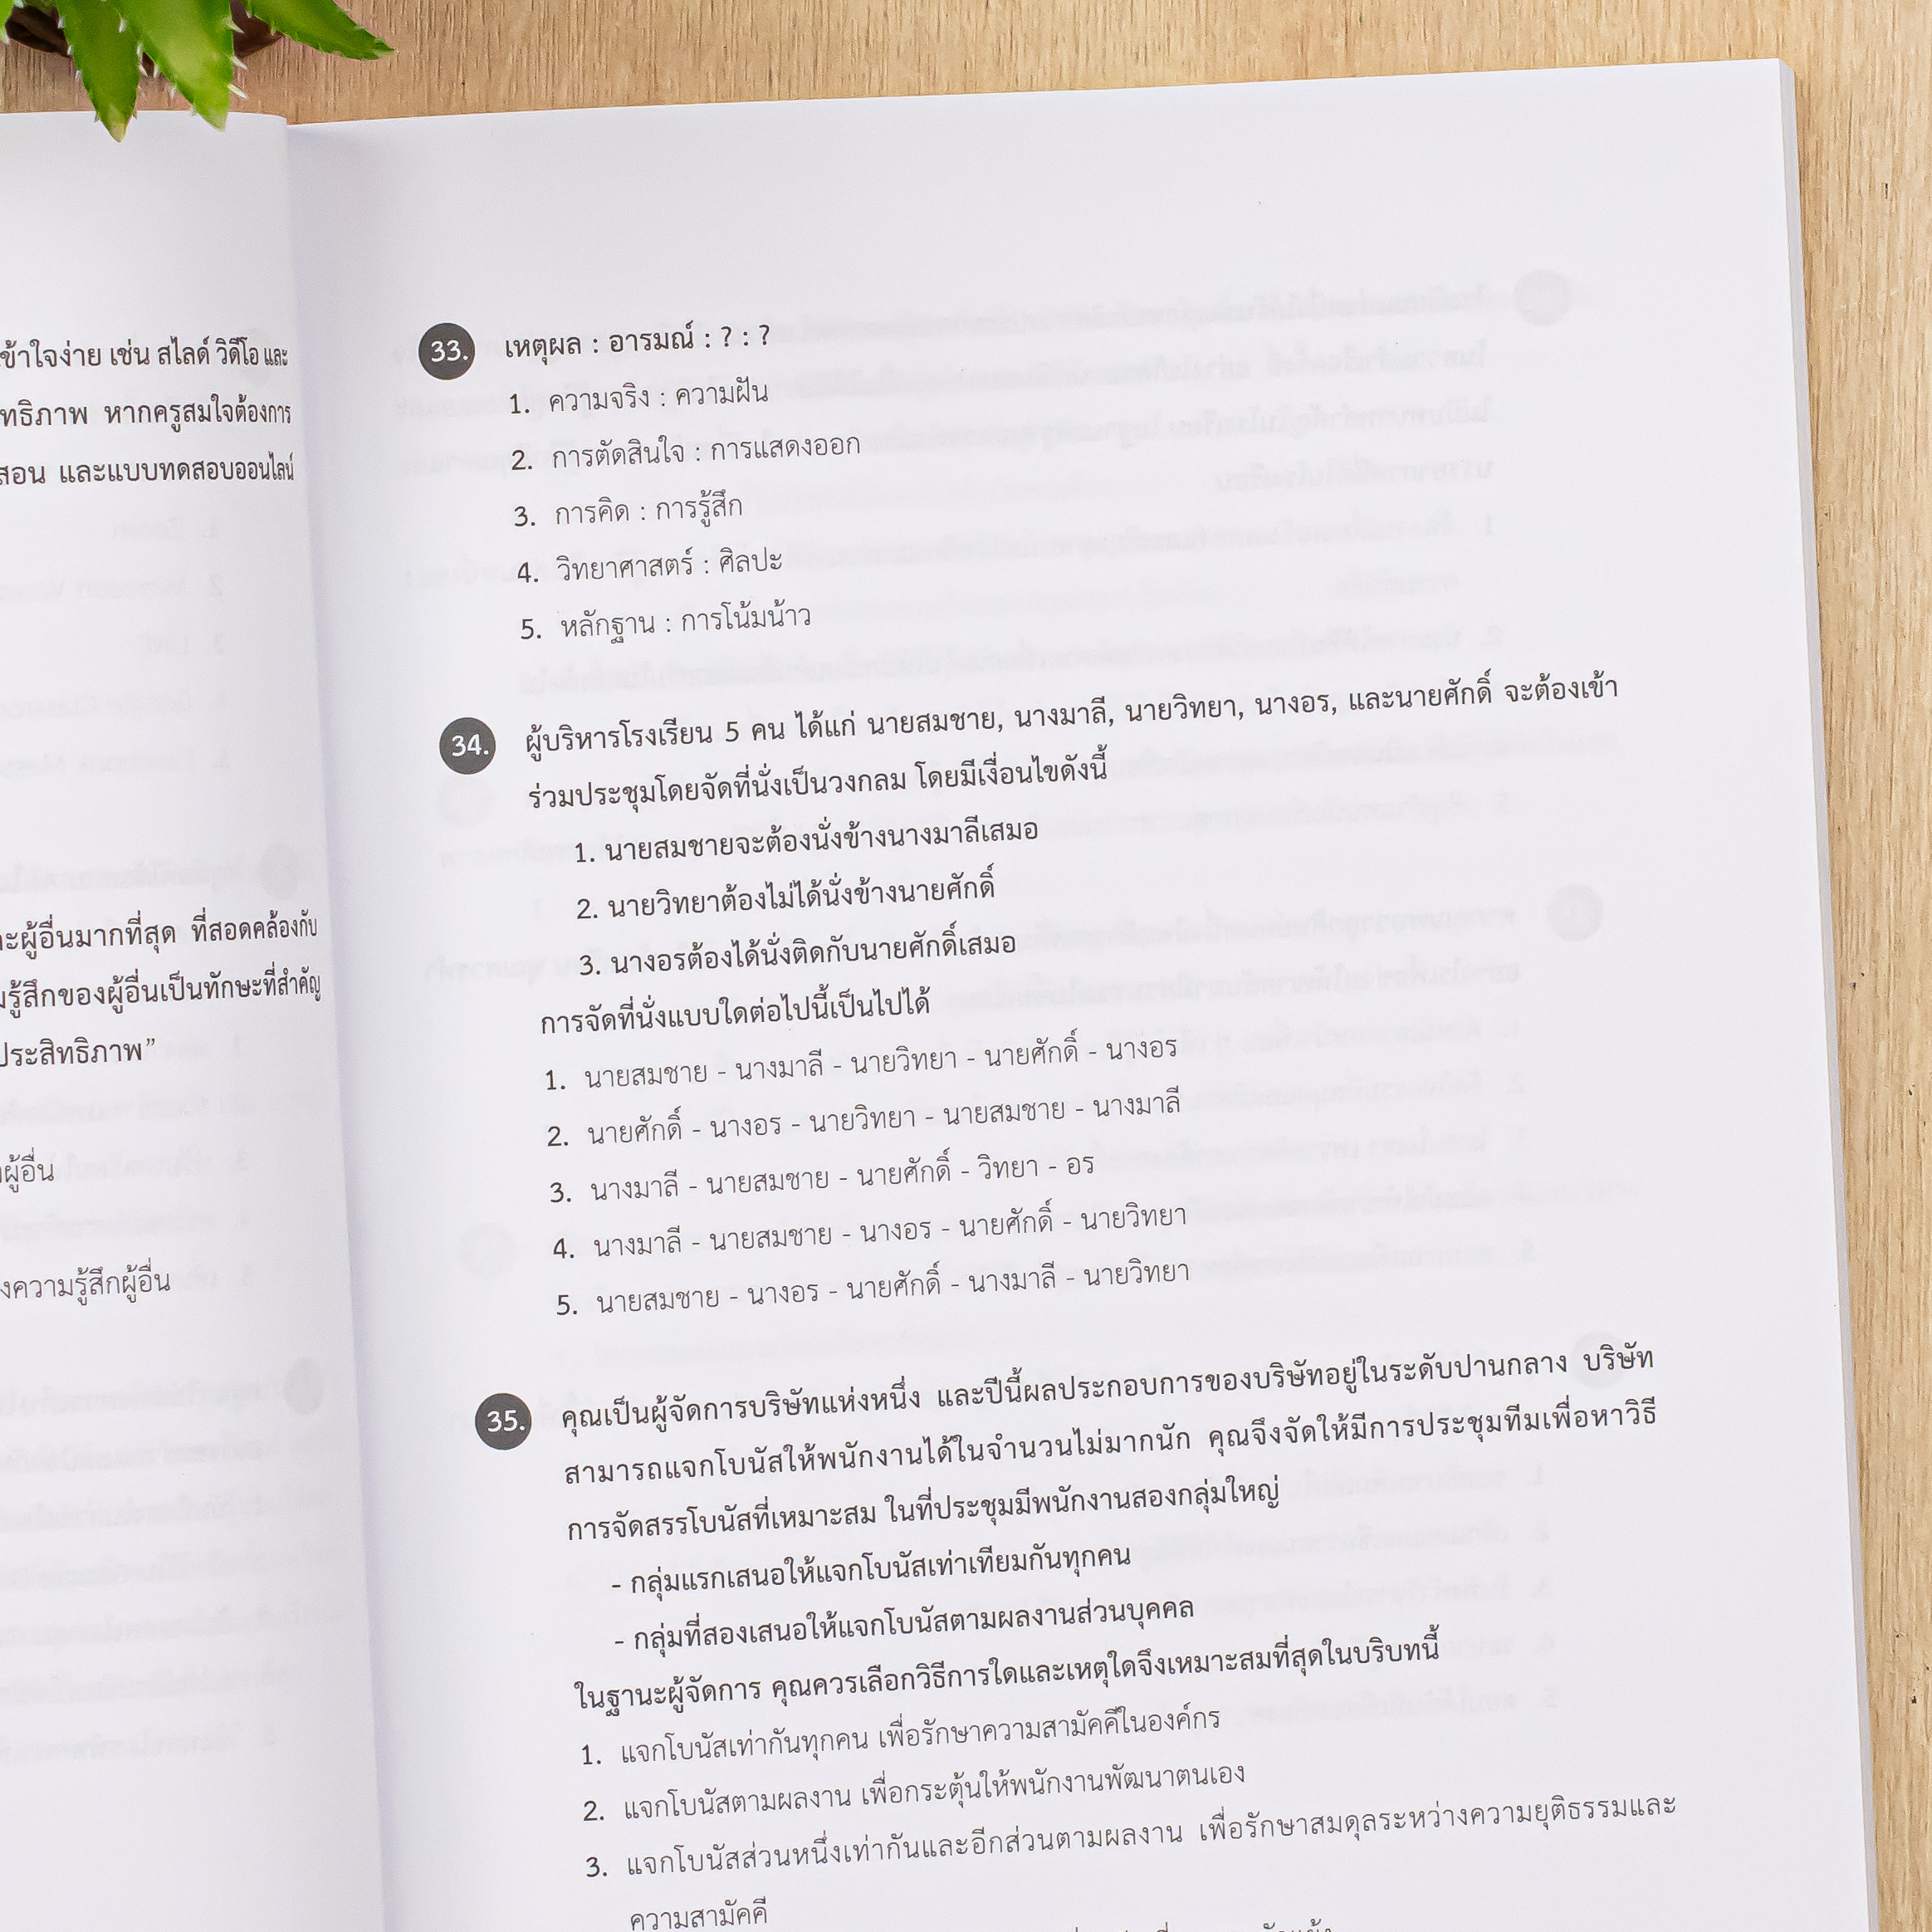 เข้าใจง่าย เช่น สไลด์ วิดีโอ และ
หากครูสมใจต้องการ
และแบบทดสอบออนไลน์
ผู้อื่นมากที่สุด ที่สอดคล้องกับ
รู้สึกของผู้อื่นเป็นทักษะที่สำคัญ
ประสิทธิภาพ”
ผู้อื่น
ความรู้สึกผู้อื่น
33. เหตุผล : อารมณ์ : ? : ?
1. ความจริง : ความฝัน
2. การตัดสินใจ : การแสดงออก
3. การคิด : การรู้สึก
4. วิทยาศาสตร์ : ศิลปะ
5. หลักฐาน : การโน้มน้าว
34. ผู้บริหารโรงเรียน 5 คน ได้แก่ นายสมชาย, นางมาลี, นายวิทยา, นางอร, และนายศักดิ์ จะต้องเข้า
ร่วมประชุมโดยจัดที่นั่งเป็นวงกลม โดยมีเงื่อนไขดังนี้
1. นายสมชายจะต้องนั่งข้างนางมาลีเสมอ
2. นายวิทยาต้องไม่ได้นั่งข้างนายศักดิ์
3. นางอรต้องได้นั่งติดกับนายศักดิ์เสมอ
การจัดที่นั่งแบบใดต่อไปนี้เป็นไปได้
1. นายสมชาย - นางมาลี - นายวิทยา - นายศักดิ์ - นางอร
2. นายศักดิ์ - นางอร - นายวิทยา - นายสมชาย - นางมาลี
3. นางมาลี - นายสมชาย - นายศักดิ์ - วิทยา - อร
4. นางมาลี - นายสมชาย - นางอร - นายศักดิ์ - นายวิทยา
5. นายสมชาย - นางอร - นายศักดิ์ - นางมาลี - นายวิทยา
35. คุณเป็นผู้จัดการบริษัทแห่งหนึ่ง และปีนี้ผลประกอบการของบริษัทอยู่ในระดับปานกลาง บริษัท
สามารถแจกโบนัสให้พนักงานได้ในจำนวนไม่มากนัก คุณจึงจัดให้มีการประชุมทีมเพื่อหาวิธี
การจัดสรรโบนัสที่เหมาะสม ในที่ประชุมมีพนักงานสองกลุ่มใหญ่
- กลุ่มแรกเสนอให้แจกโบนัสเท่าเทียมกันทุกคน
- กลุ่มที่สองเสนอให้แจกโบนัสตามผลงานส่วนบุคคล
ในฐานะผู้จัดการ คุณควรเลือกวิธีการใดและเหตุใดจึงเหมาะสมที่สุดในบริบทนี้
1. แจกโบนัสเท่ากันทุกคน เพื่อรักษาความสามัคคีในองค์กร
2. แจกโบนัสตามผลงาน เพื่อกระตุ้นให้พนักงานพัฒนาตนเอง
3. แจกโบนัสส่วนหนึ่งเท่ากันและอีกส่วนตามผลงาน เพื่อรักษาสมดุลระหว่างความยุติธรรมและ
ความสามัคคี